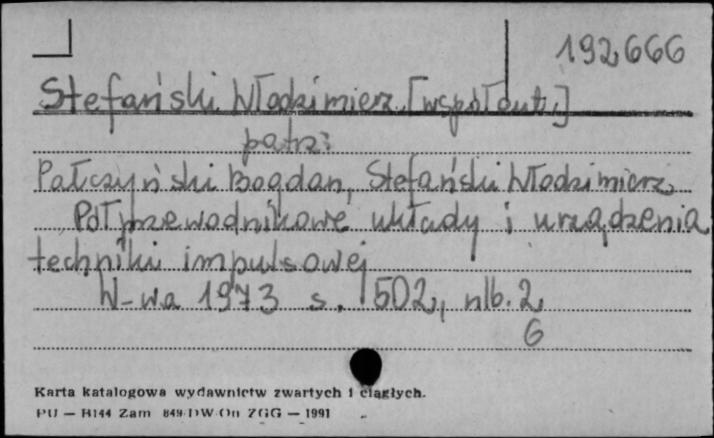 192666
Stefański Włodzimierz [współaut.]
patrz:
Pałczyński Bogdan, Stefański Włodzimierz
Półprzewodnikowe układy i urządzenia
techniki impulsowej
W-wa 1973 s. 502, nlb. 2
6
Karta katalogowa wydawnictw zwartych i ciągłych.
PU — H144 Zam 849/DW/On ZGG — 1991